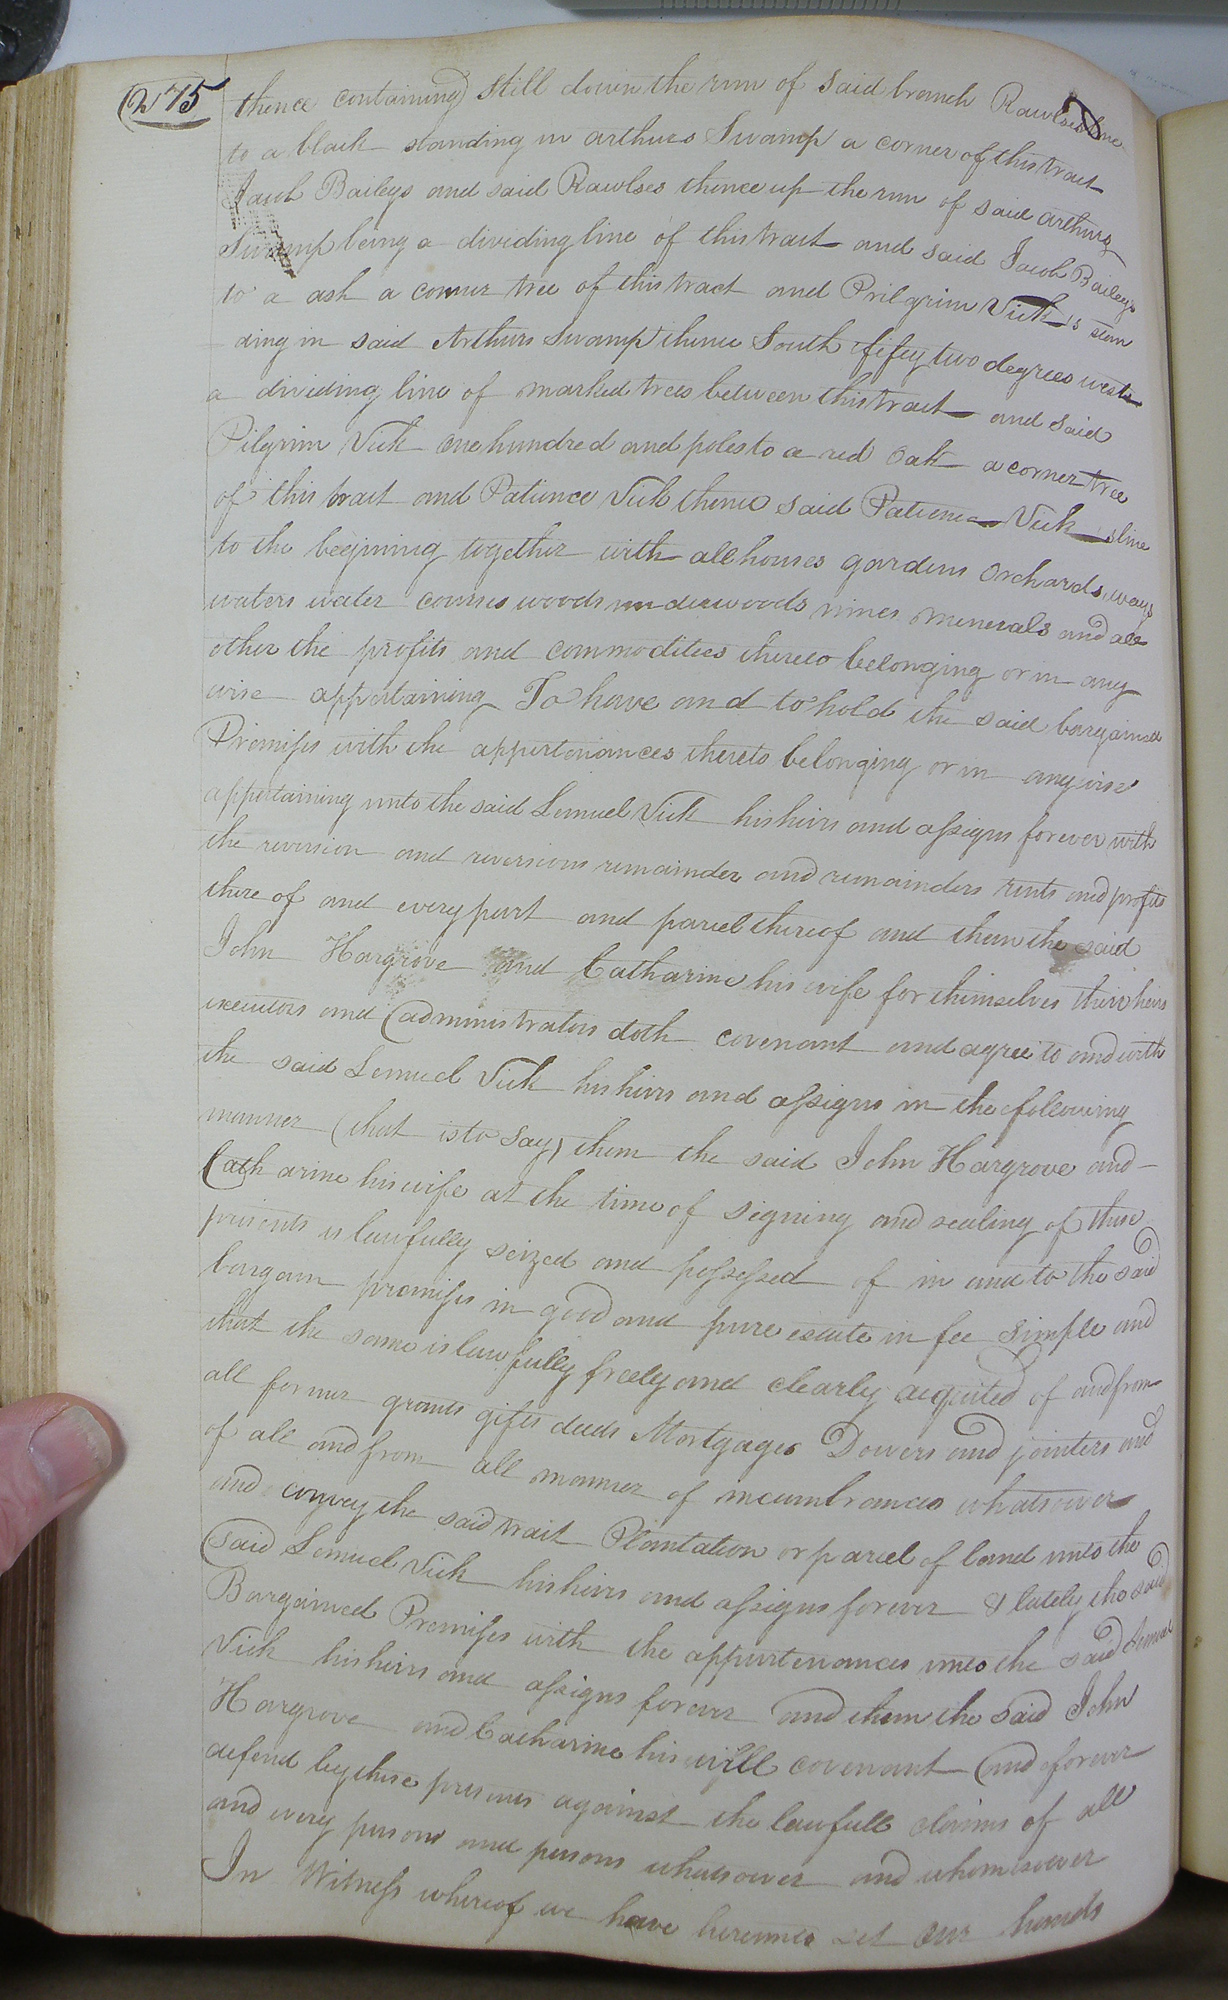 (275
thence containing still down the run of said branch Rawlses line
to a black standing in arthurs Swamp a corner of this tract
Jacob Baileys and said Rawlses thence up the run of said arthurs
Swamp being a dividing line of this tract and said Jacob Baileys
to a ash a corner tree of this tract and Prilgrim Vick is stan
ding in said Arthurs Swamp thence South fifey two degrees west
a dividing line of marked trees between this tract and said
Pilgrim Vick one hundred and poles to a red Oak a corner tree
of this tract and Patience Vick thence said Patience Vick s line
to the begining together with all houses gardens Orchards, ways
waters water courses woods underwoods mines minerals and all
other the profits and commodities thereto belonging or in any
wise appertaining To have and to hold the said bargained
Premises with the appertenances thereto belonging or in anywise
appertaining unto the said Lemuel Vick his heirs and assigns forever with
the reversion and reversions remainder and remainders rents and profits
there of and every part and parcel thereof and them the said
John Hargrove and Catharine his wife for themselves their heirs
executors and administrators doth covenant and agree to and with
the said Lemuel Vick his heirs and assigns in the following
manner (that is to say) them the said John Hargrove and
Catharine his wife at the time of signing and sealing of these
presents is lawfully seized and possessed of in and to the said
bargain premises in good and pure estate in fee Simple and
that the same is lawfully freely and clearly acquited of and from
all former grants gifts deeds Mortgages Dowers and jointers and
of all and from all manner of incumbrances whatsoever
and convey the said tract Plantation or parcel of land unto the
said Lemuel Vick his heirs and assigns forever & lately the said
Bargained Premises with the appurtenances unto the said Lemuel
Vick his heirs and assigns forever and them the said John
Hargrove and Catharine his will covenant and forever
defend by these presents against the lawfull claims of all
and every person and persons whatsoever and whomsoever
In Witness whereof we have hereunto set our hands